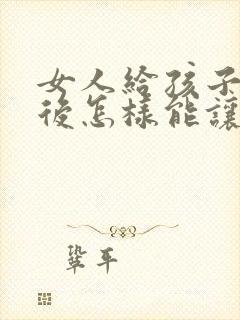 女人給孩子
後怎樣能讓
鞏平